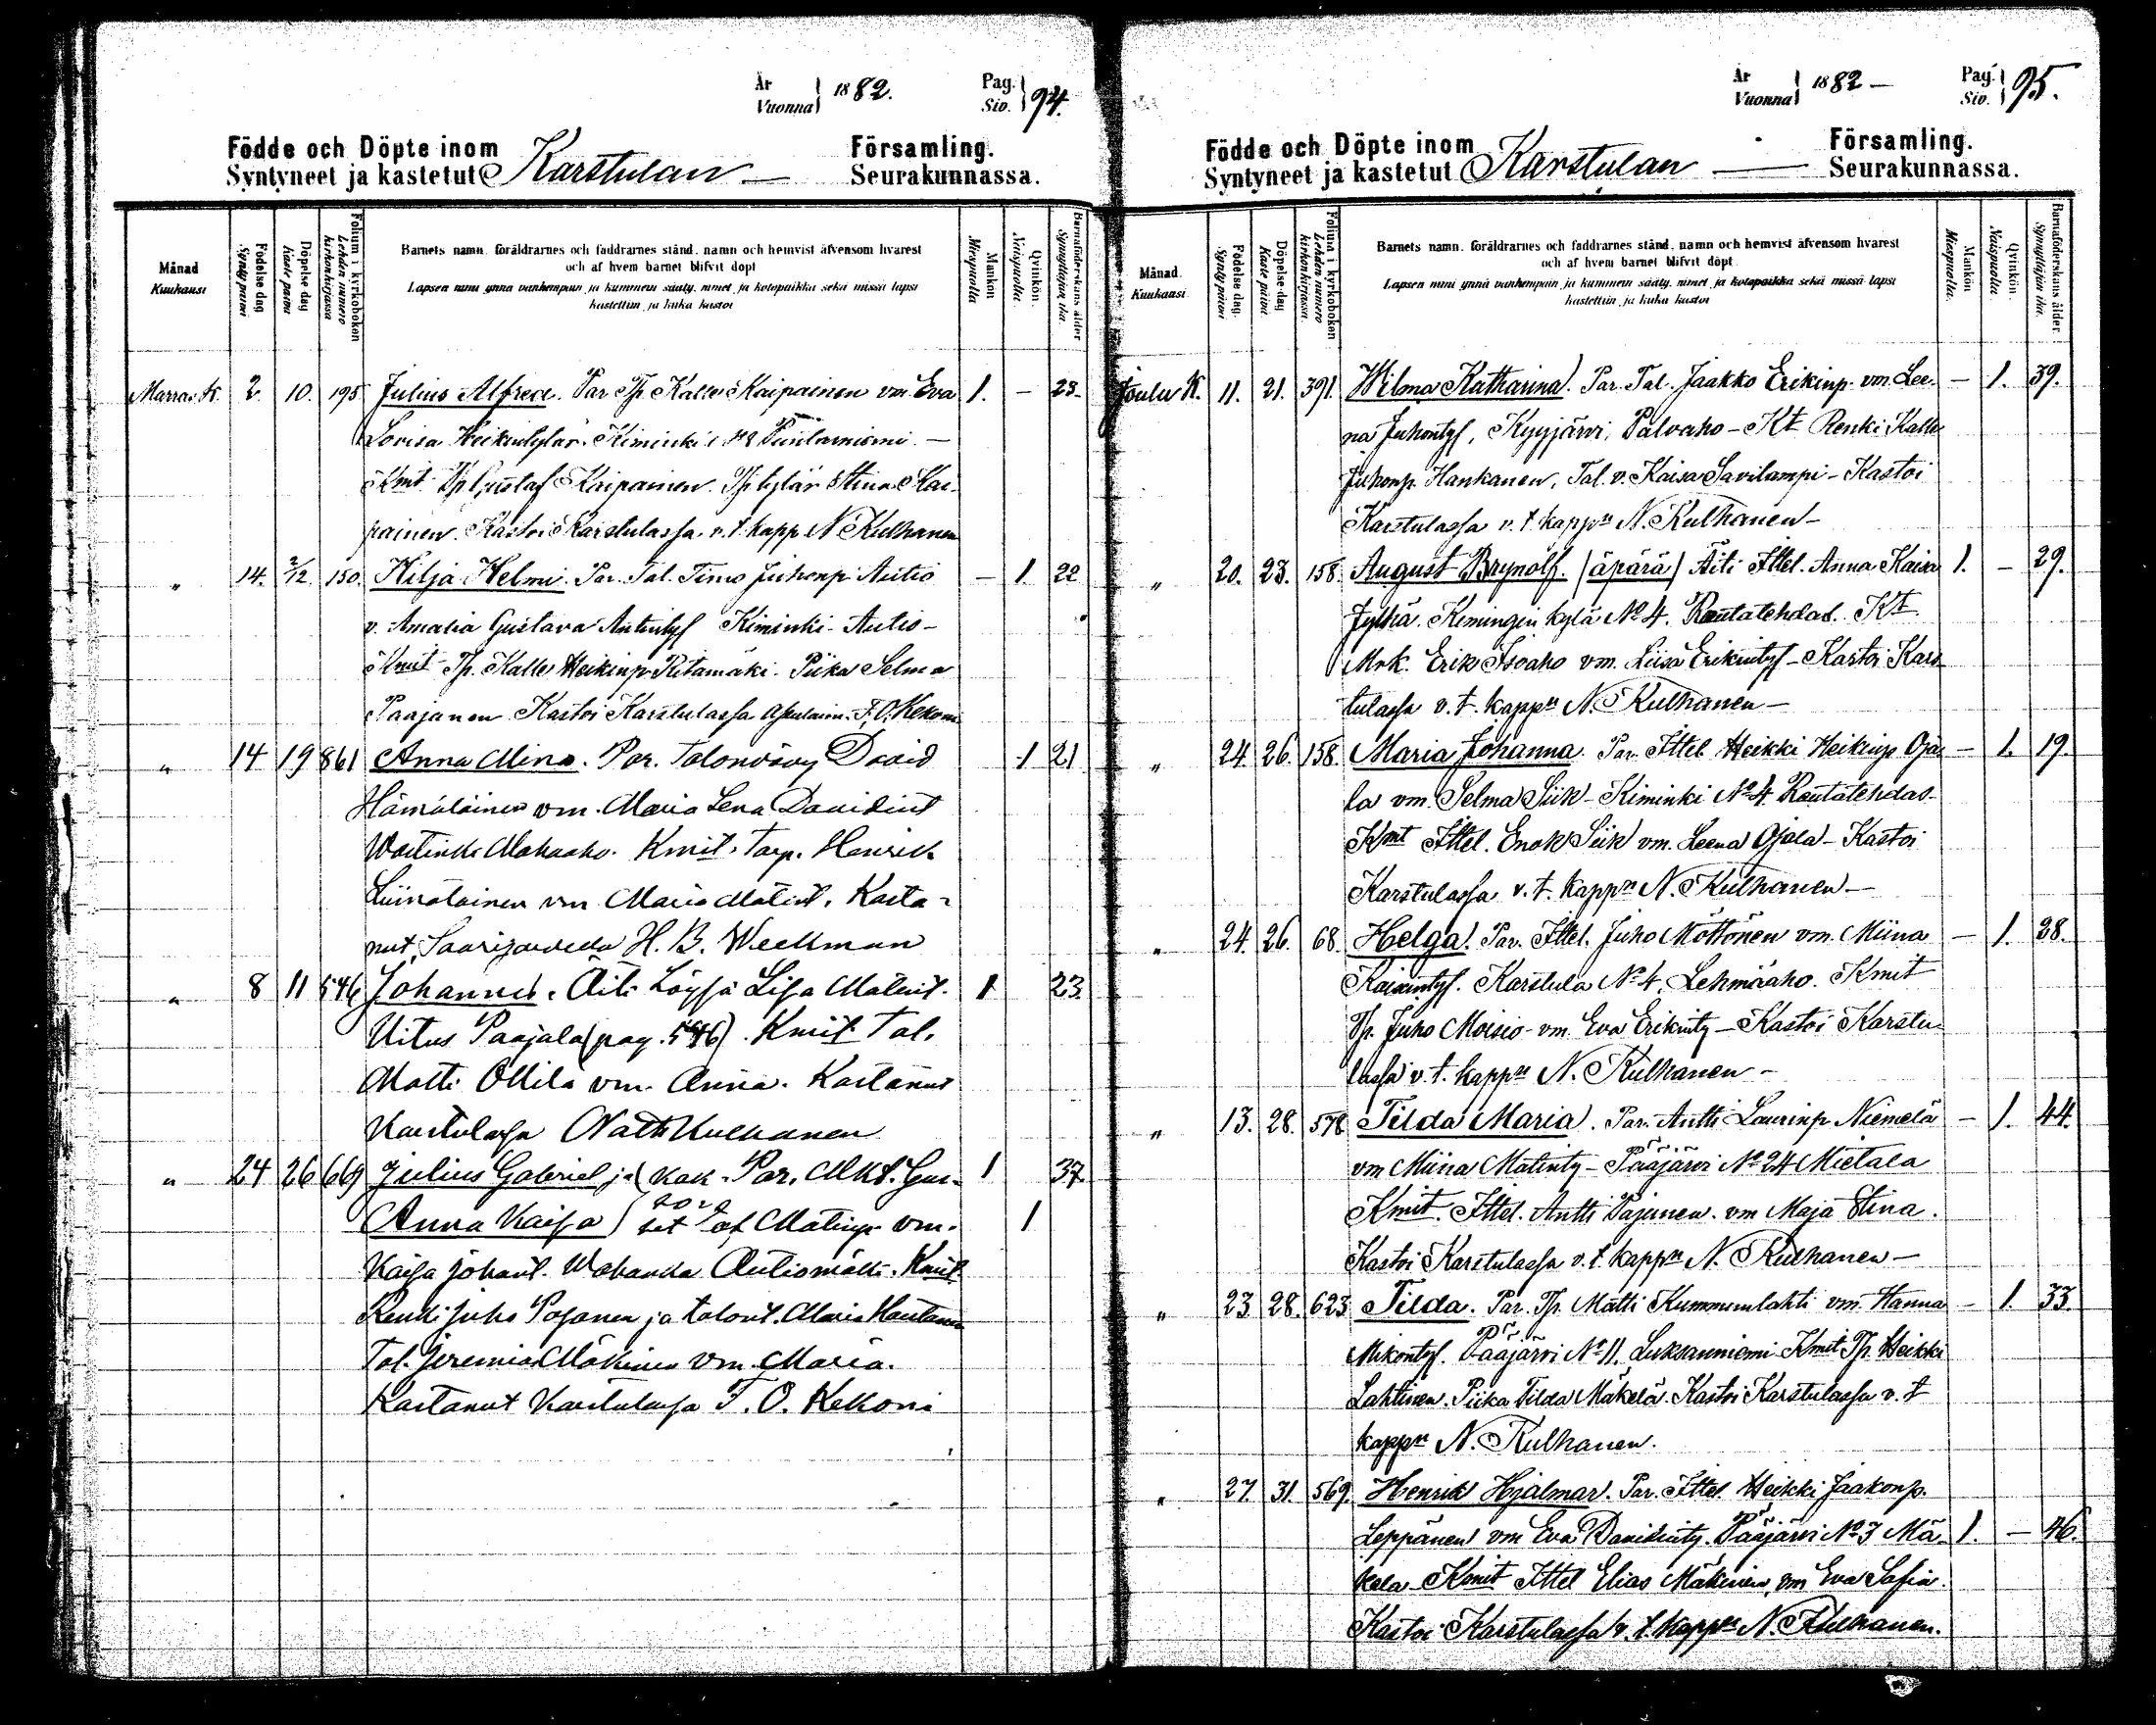 År
Vuonna 1882.
Pag.
Siv. 94.
Födde och Döpte inom
Syntyneet ja kastetut Karstulan
Församling.
Seurakunnassa.
Månad
Kuukausi
Födelse dag
Synty päivä
Döpelse dag
Kaste päivä
Folium i kyrkoboken
Lehden numero kirkonkirjassa
Barnets namn, föräldrarnes och faddrarnes stånd, namn och hemvist äfvensom hvarest
och af hvem barnet blifvit döpt
Lapsen nimi ynnä vanhempain ja kummein sääty, nimet ja kotopaikka sekä missä lapsi
kastettiin ja kuka kastoi
Mankön
Miespuolia
Qvinkön
Naispuolia
Barnaföderskans ålder
Synnyttäjän ikä
Marras K. 2. 10. 195 Julius Alfred. Par Tp Kalle Kaipainen vm Eva 1. – 23.
Lovisa Heikintytär. Kiminki 18
Kmit Tp Gustaf Kaipainen. Tp tytär Stina Kai-
painen. Kastoi Karstulassa v. t. kapp N Kulhanen
" 14. 2/12. 150. Hilja Helmi. Par. Tal. Timo Juhonp Autio – 1. 22
v. Amalia Gustava Antintyt Kiminki Autio –
Kmit Tp. Kalle Heikinp Ritamäki. Piika Selma
Paajanen Kastoi Karstulassa F. O. Kekoni
" 14 19 861 Anna Mina. Par. Talonvävy David 1 21
Hämäläinen vm. Maria Lena Davidint
Mahaaho. Kmit. Torp. Henrik
vm Maria Matint. Kasta-
nut Saarijärvella H. B. Weckman
" 8 11 546 Johannes. Äiti Löysä Lisa Matint. 1 23
Uitus Paajala (pag. 546). Kmit Tal.
Matti Ollila vm. Anna. Kastanut
Karstulassa Nath Kulhanen
" 24 26 669 Julius Gabriel ja kak- Par. Mkt. Gus- 1 37
Anna Kaisa sois set taf Matinp vm. 1
Kaisa Johant. Wahanka Autiomäki. Kmit.
Renki Juho Poganen ja talont. Maria Hautanen
Tal. Jeremias Mäkinen vm. Maria.
Kastanut Karstulassa F. O. Kekoni
År
Vuonna 1882 –
Pag.
Siv. 95.
Födde och Döpte inom
Syntyneet ja kastetut Karstulan
Församling.
Seurakunnassa.
Månad.
Kuukausi
Födelse dag.
Synty päivä
Döpelse dag
Kaste päivä
Folium i kyrkoboken
Lehden numero kirkonkirjassa.
Barnets namn, föräldrarnes och faddrarnes stånd, namn och hemvist äfvensom hvarest
och af hvem barnet blifvit döpt
Lapsen nimi ynnä vanhempain ja kummein sääty, nimet ja kotopaikka sekä missä lapsi
kastettiin ja kuka kastoi
Mankön
Miespuolia.
Qvinkön
Naispuolia.
Barnaföderskans ålder.
Synnyttäjän ikä.
Joulu K. 11. 21. 391. Wilma Katharina. Par. Tal. Jaakko Erikinp. vm. Lee- – 1. 39.
na Juhontyt, Kyyjärvi, Palvaho – Kt Renki Kalle
Juhonp. Hankanen, Tal. v. Kaisa Savilampi – Kastoi
Karstulassa v. t. kappn N. Kulhanen –
" 20. 23. 158. August Brynolf. (äpärä) Äiti Ittel. Anna Kaisa 1. – 29.
Jylhä. Kimingin kylä No 4. Rautatehdas. Kt
Mrk. Erik Isoaho vm. Liisa Erikintyt – Kastoi Kars-
tulassa v. t. kappn N. Kulhanen –
" 24. 26. 158. Maria Johanna. Par. Ittel. Heikki Heikinp Oja- – 1. 19.
la vm. Selma Siik – Kiminki No 4. Rautatehdas.
Kmt Ittel. Enok Siik vm. Leena Ojala – Kastoi
Karstulassa v. t. kappn N. Kulhanen –
" 24. 26. 68. Helga. Par. Ittel. Juho Möttönen vm. Miina – 1. 28.
Karstula No 4. Lehmäaho. Kmit
Tp. Juho Moisio vm. Eva Erikinty – Kastoi Karstu-
lassa v. t. kappn N. Kulhanen –
" 13. 28. 578 Tilda Maria. Par. Antti Laurinp Niemelä – 1. 44.
vm Miina Matinty – Pääjärvi No 24 Mietala
Kmit. Ittel. Antti Pajunen. vm Maja Stina.
Kastoi Karstulassa v. t. kappn N. Kulhanen –
" 23. 28. 623 Tilda. Par. Tp. Matti Kummunlahti vm. Hanna – 1. 33
Mikontyt. Pääjärvi No 11, Luksanniemi Kmit Tp. Heikki
Lahtinen. Piika Tilda Mäkelä. Kastoi Karstulassa v. t
kappn N. Kulhanen.
" 27. 31. 569. Henrik Hjalmar. Par. Ittel. Heikki Jaakonp.
Leppänen vm Eva Davidinty. Pääjärvi No 3 Mä- 1. – 46.
kela Kmit Ittel Elias Mäkinen, vm Eva Sofia.
Kastoi Karstulassa v. t. kappn N. Kulhanen.